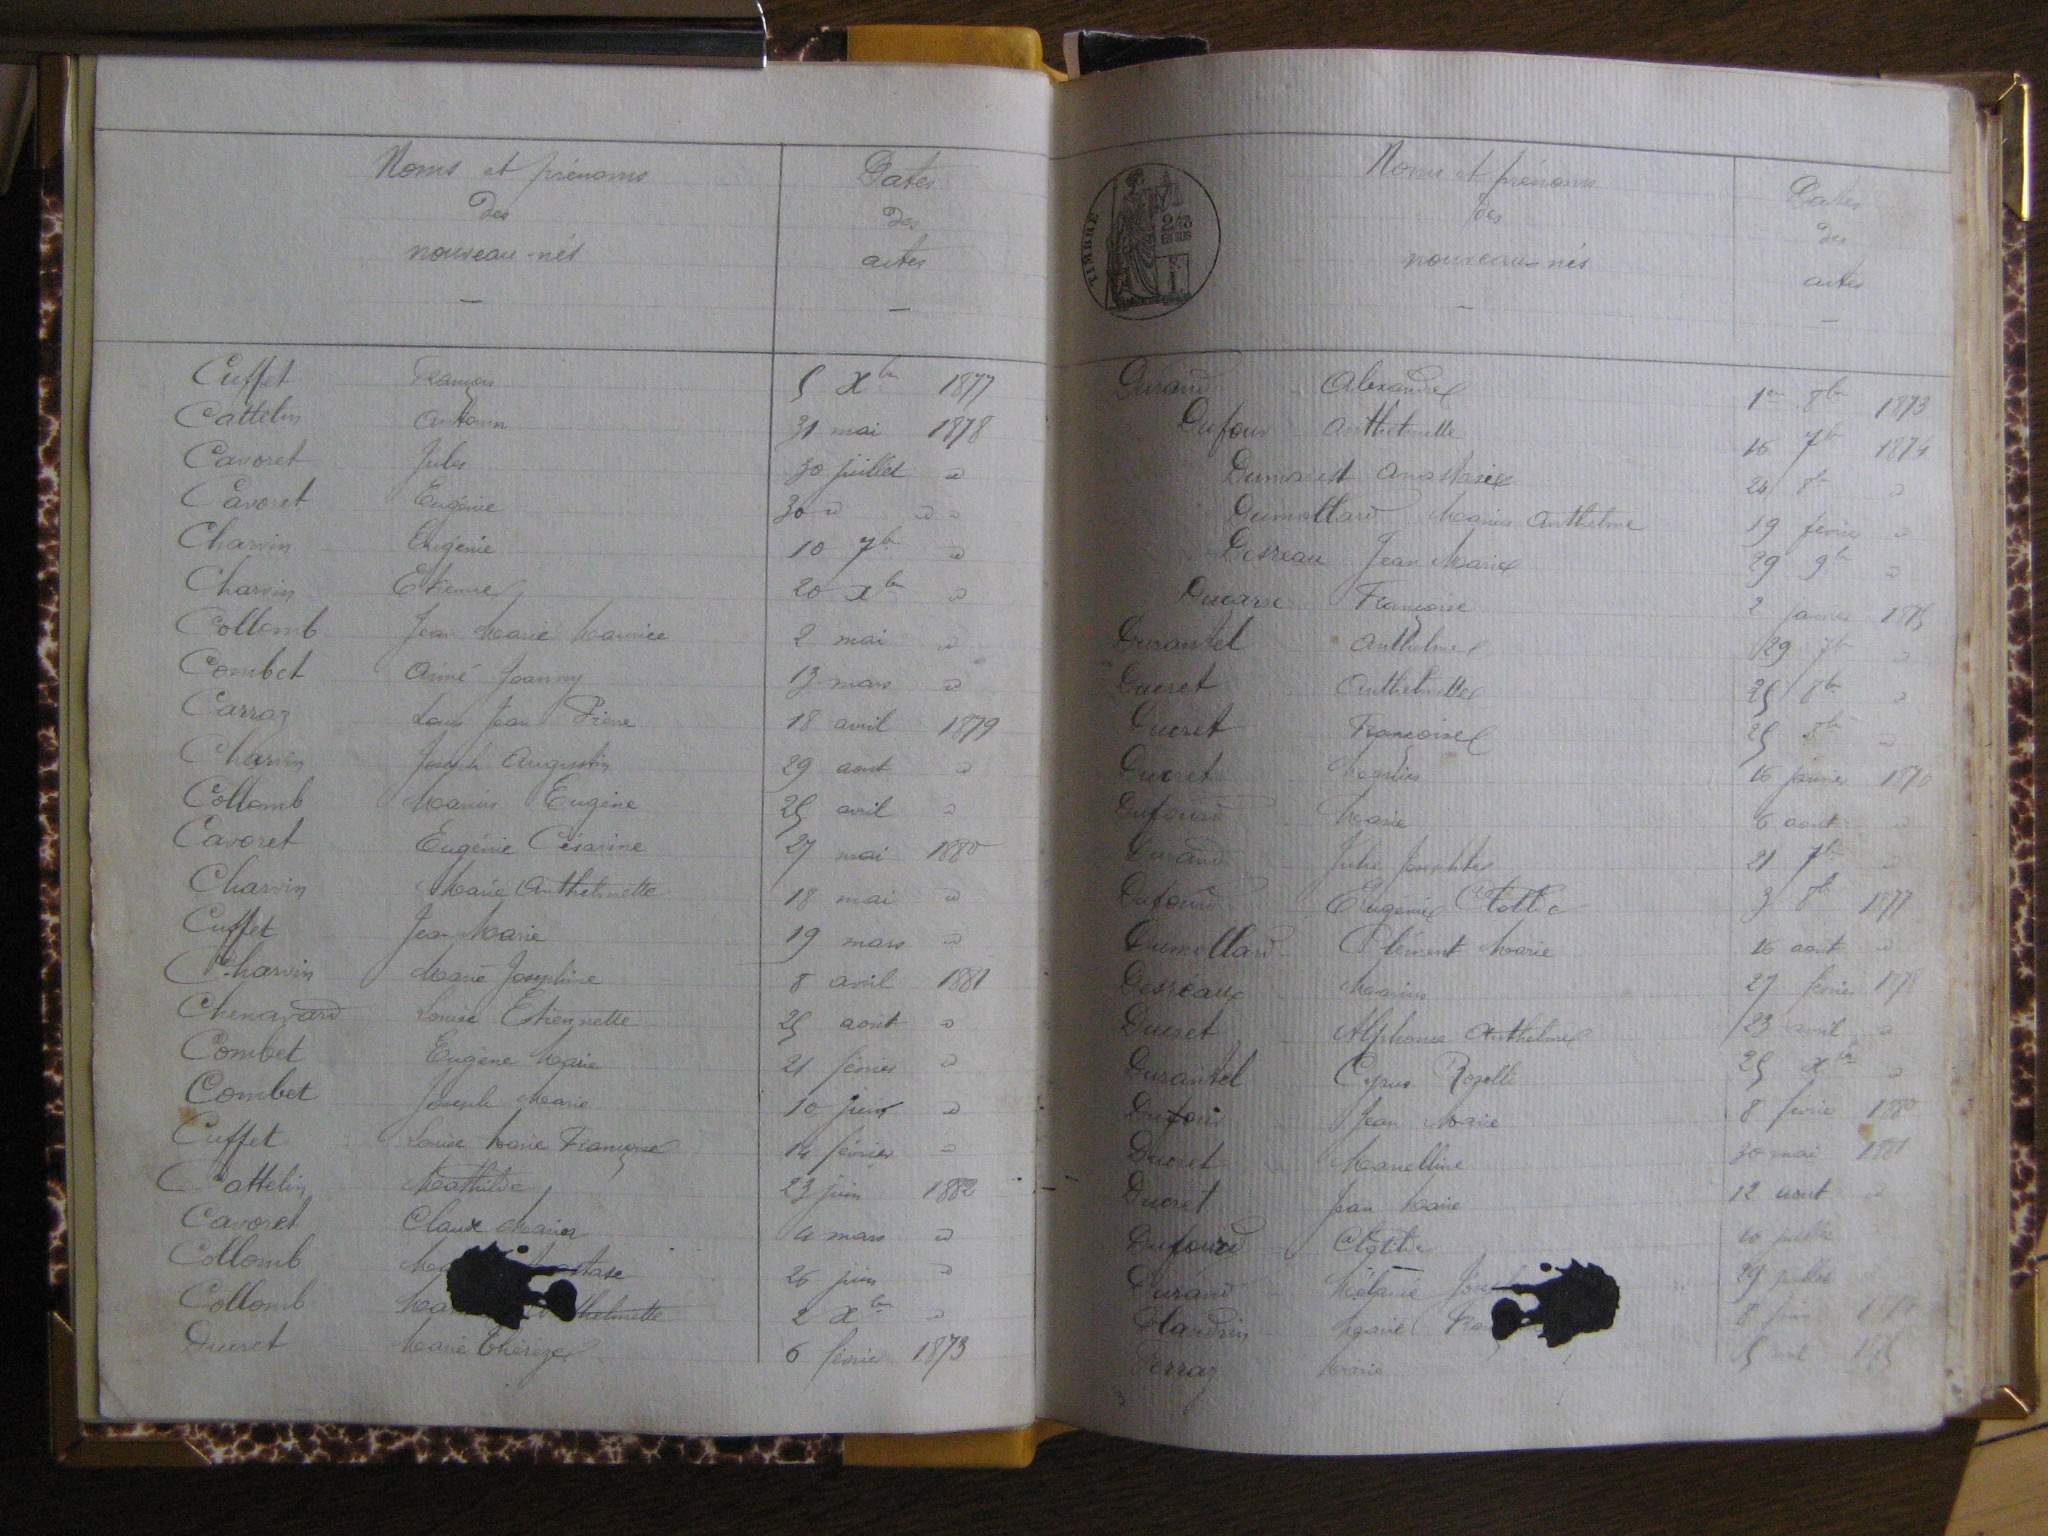 Noms et prénoms
des
nouveau-nés
Dates
des
actes
Cuffet François 5 Xbre 1877
Cattelin Antonin 31 mai 1878
Cavoret Jules 30 juillet "
Cavoret Eugénie 30 " " "
Charvin Eugénie 10 7bre "
Charvin Etienne 20 Xbre "
Collomb Jean Marie Maurice 2 mai "
Combet Aimé Joanny 13 mars "
Carraz Louis Jean Pierre 18 avril 1879
Charvin Joseph Augustin 29 aout "
Collomb Marius Eugène 25 avril "
Cavoret Eugénie Césarine 27 mai 1880
Charvin Marie Anthelmette 18 mai "
Cuffet Jean Marie 19 mars "
Charvin Marie Joséphine 8 avril 1881
Chenavard Louise Etiennette 25 août "
Combet Eugène Marie 21 février "
Combet Joseph Marie 10 juin "
Cuffet Louise Marie Françoise 14 février "
Cattelin Mathilde 23 juin 1882
Cavoret Claude Marius 4 mars "
Collomb 26 juin "
Collomb 2 Xbre "
Ducret Marie Thérèze 6 février 1873
TIMBRE
Noms et prénoms
des
nouveau-nés
Dates
des
actes
Durand Alexandre 1er 8bre 1873
Dufour Anthelmette 16 7bre 1874
Dumarest Anastasie 24 8bre "
Dumollard Marius Anthelme 19 février "
Desreaux Jean Marie 29 9bre "
Ducarre Françoise 2 janvier 1875
Durantel Anthelme 29 7bre "
Ducret Anthelmette 25 8bre "
Ducret Françoise 25 8bre "
Ducret 16 janvier 1876
Dufourd Marie 6 aout "
Durand Julie 21 7bre "
Dufourd Eugénie Clotilde 3 8bre 1877
Dumollard Clément Marie 16 août "
Desréaux Marius 27 février 1878
Ducret Alphonse Anthelme 23 avril "
Durantel Cyrus 25 Xbre "
Dufour Jean Marie 8 février 1880
Ducret 30 mai 1881
Ducret Jean Marie 12 aout "
Dufourd Clotilde 10 juillet
Durand Mélanie 29 juillet
Marie 8 juin
Ferraz Marie